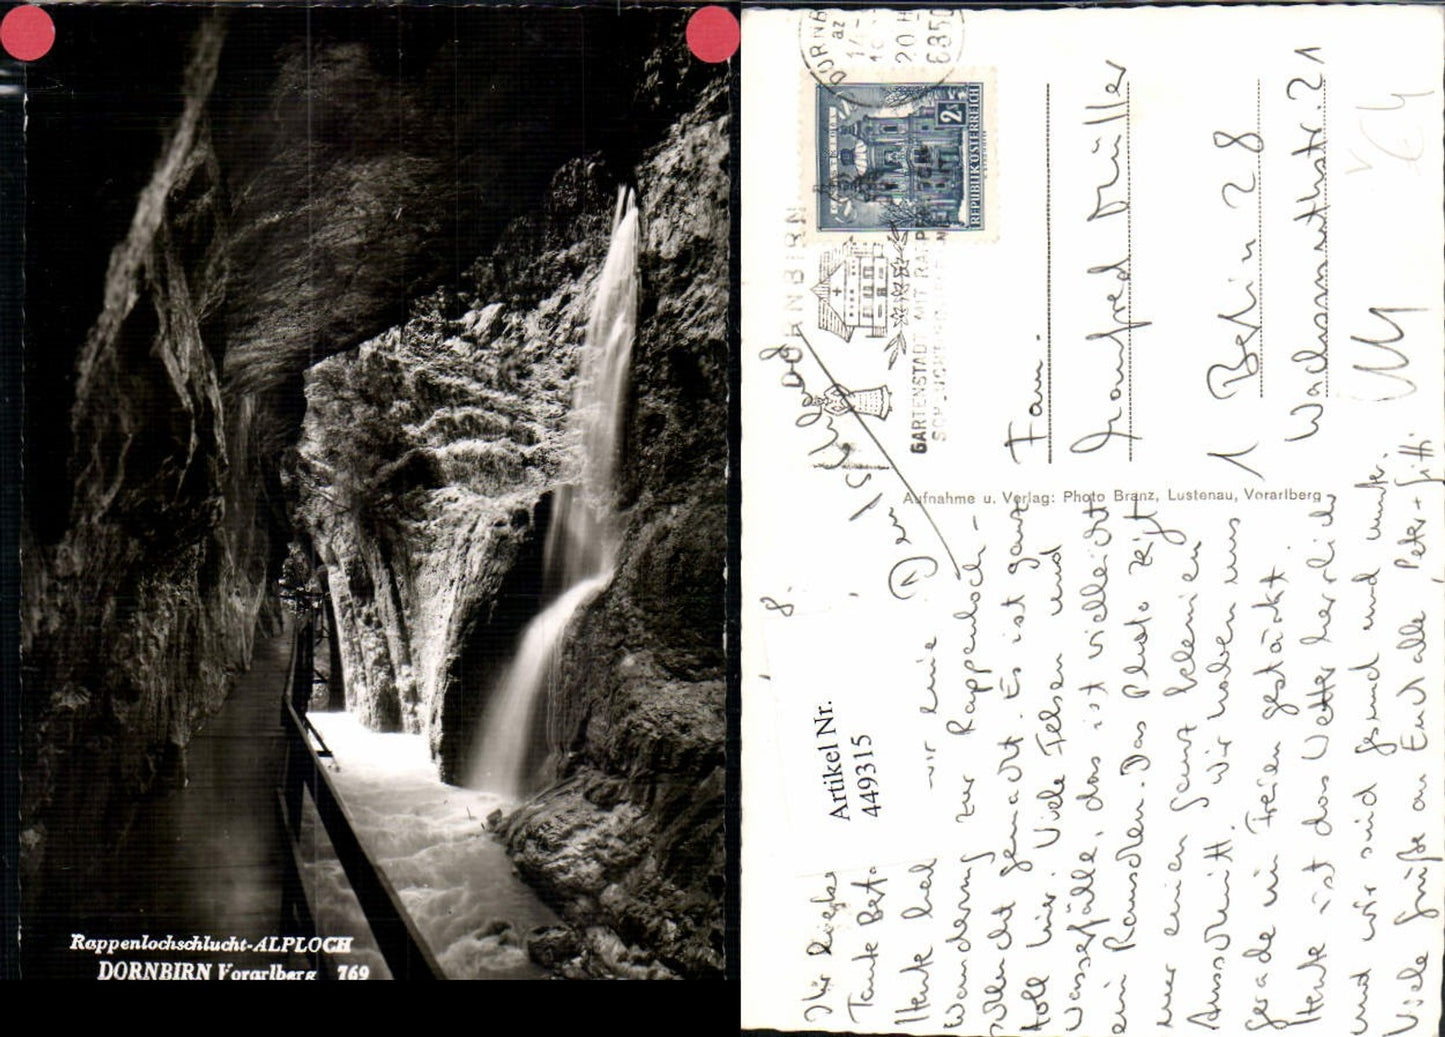 Rappenlochschlucht-ALPLOCH
DORNBIRN Vorarlberg 769
DORNB
az
20
6850
2 S
REPUBLIK ÖSTERREICH
DORNBIRN
GARTENSTADT MIT RAPPE
Fam.
Manfred Müller
1 Berlin 28
Wachsmuthstr. 21
Aufnahme u. Verlag: Photo Branz, Lustenau, Vorarlberg
Artikel Nr.
449315
Ihr Lieben
Tante
Heute wir eine
Wanderung zur Rappenloch-
schlucht gemacht. Es ist ganz
toll hier. Viele Felsen und
Wasserfälle, das ist vielleicht
ein Rauschen. Das Photo zeigt
nur einen ganz kleinen
Ausschnitt. Wir haben uns
gerade im Freien gestärkt.
Heute ist das Wetter herrlich
und wir sind gesund und munter.
Viele Grüße an Euch alle Peter + Gitti